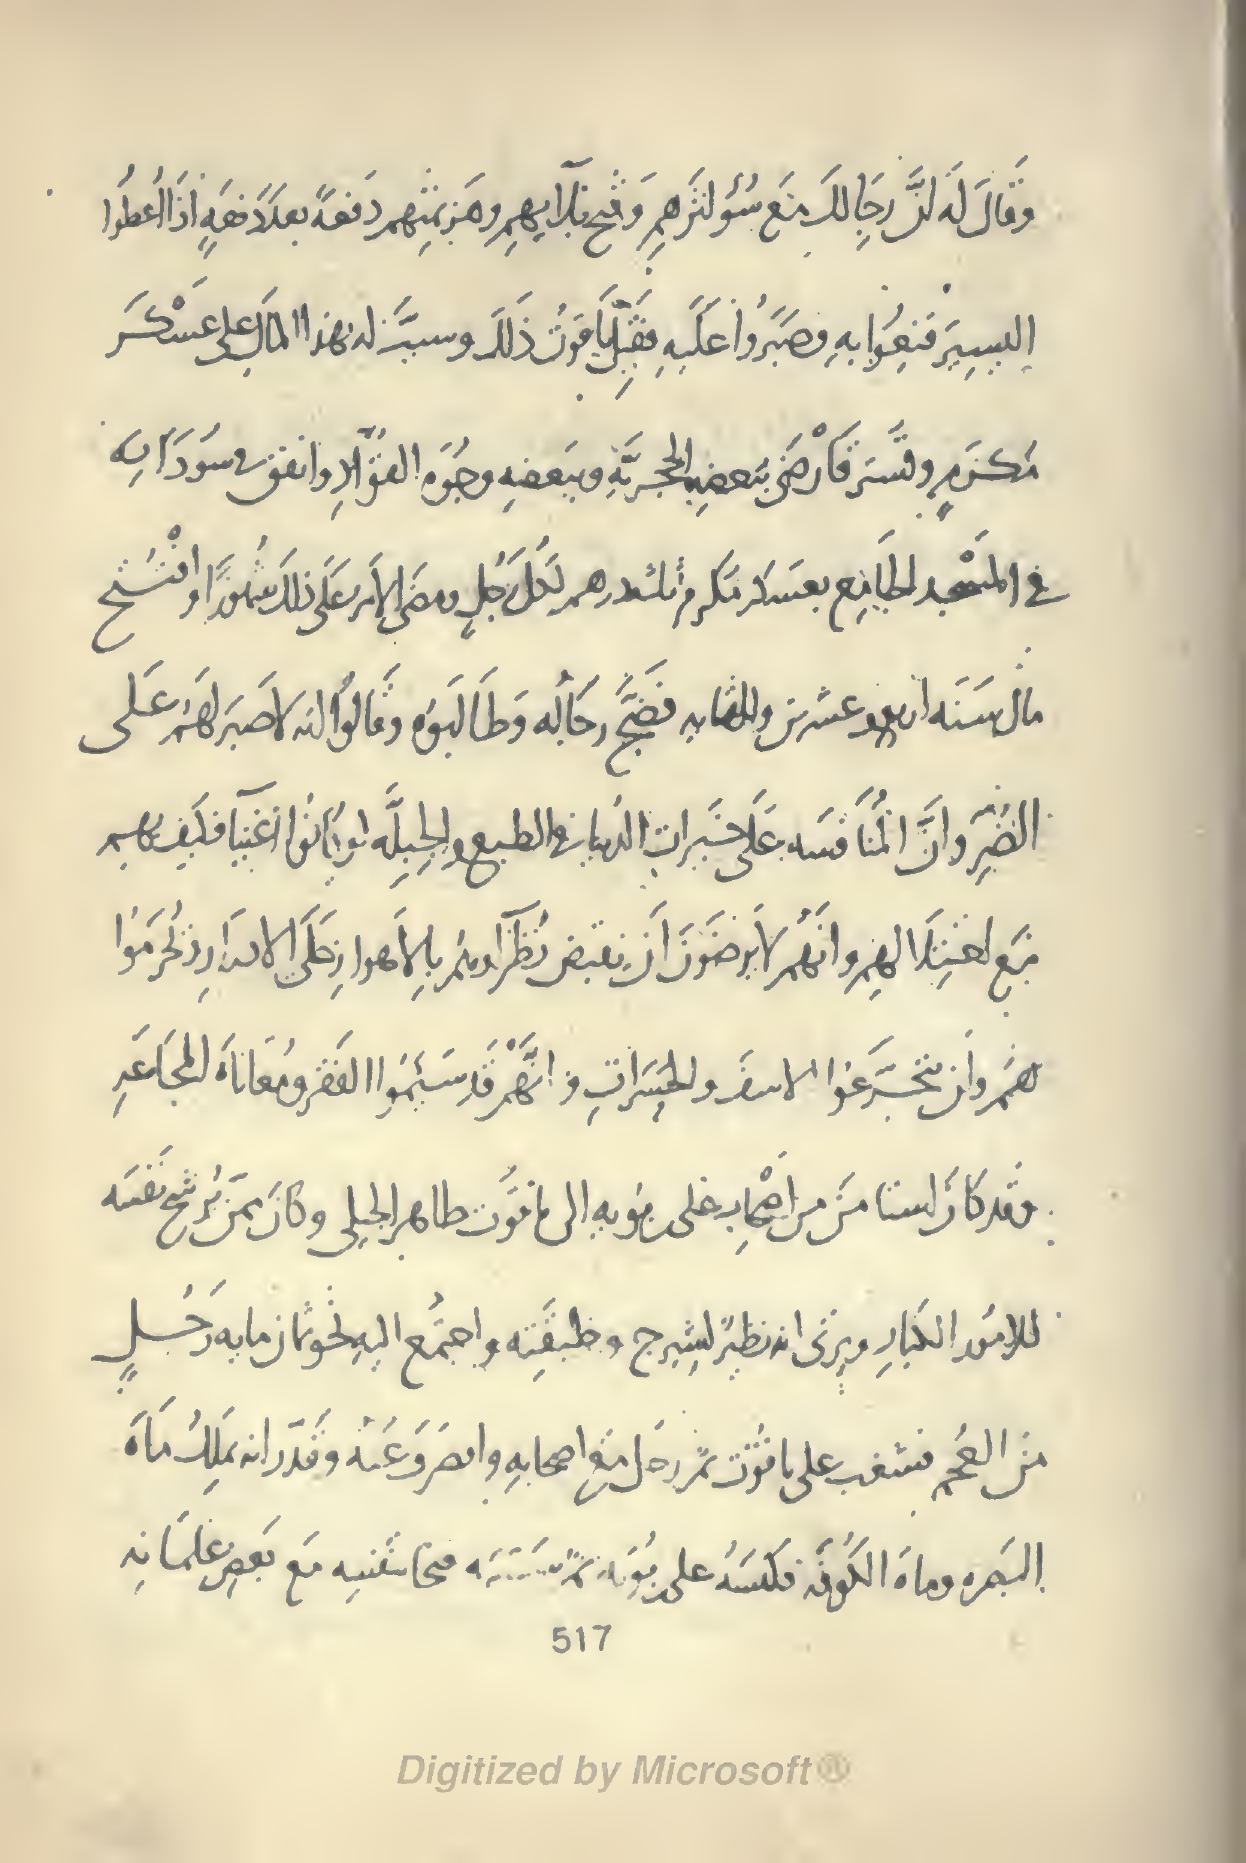 وَقَالَ لَه انَّ رِجَالكَ مَع سُؤ اثَرهِمِ وَقبح بَلآايهِمِ وهَزيمتِهم دَفعَةً بعدَ دَفعَةٍ اذَا اُعطُوا
اليسِيرَ قَنِعُوا بِهِ وصَبَرُوا عَلَيهِ فقَبِلَ يَاقوتُ ذَلكَ وسبَّبَ له بهذا المَال على عَسْكَر
مُكرَمٍ وتُستَر فَأرْضَى ببَعضِهِ الحجريَّةَ وببَعضِهِ وجُوهَ القوَّادِ وانفق في سُودَانِه
في المَسْجِد الجَامِع بعَسكَر مُكرم ثلثه دراهم لكُلّ رَجُلٍ ومضَى الاَمر عَلَى ذلكَ شهُورًا وافْتُتح
مال سَنَه اربع وعشرين وثلثمايه فضَجَّ رجَالُه وَطَالَبُوه وقَالُوا انه لا صَبَر لهم عَلَى
الضُرِّ وانَّ المُنَافسَه عَلَى خَيرات الدنيا في الطبع والجِبِلَّه لو كَانُوا اغنيَآ فكَيفَ بهم
مَع اختِلَالهِم وانَّهُم لا يَرضَونَ اَن يقبض نُظَرَآوهُم بِالاَهواز حَلَى الاسَار ويُحْرَمُوا
هُم وان يتجَرَّعُوا الاسف والحَسَراتِ وانَّهُمْ قَد سَئِمُوا الفَقر ومُعَانَاةَ المجَاعَهِ
وقَد كَانَ استَامَن من اَصْحَابِ على بن بُوَيه الى يَاقوُت طاهر الجيلي وكانَ ممَّن يُرشِح نَفسَه
للامُور الكبَارِ ويَرَى انه نظيرٌ لشِيرج وطبقَتِه واجتمَع اليهِ نحو ثمان مايه رَجُلٍ
مِنَ العُجمِ فشغب على يَاقُوت ثم رحَل مَع اصحابِه وانصَرفَ عَنهُ وقَدَّر انه يَملِكُ مَاهَ
البَصره ومَاهَ الكُوفَه فكبَسَهُ على بن بُوَيه ثم فنجَا بنَفسِه مَع بَعضِ غلمَانِه
517
Digitized by Microsoft®